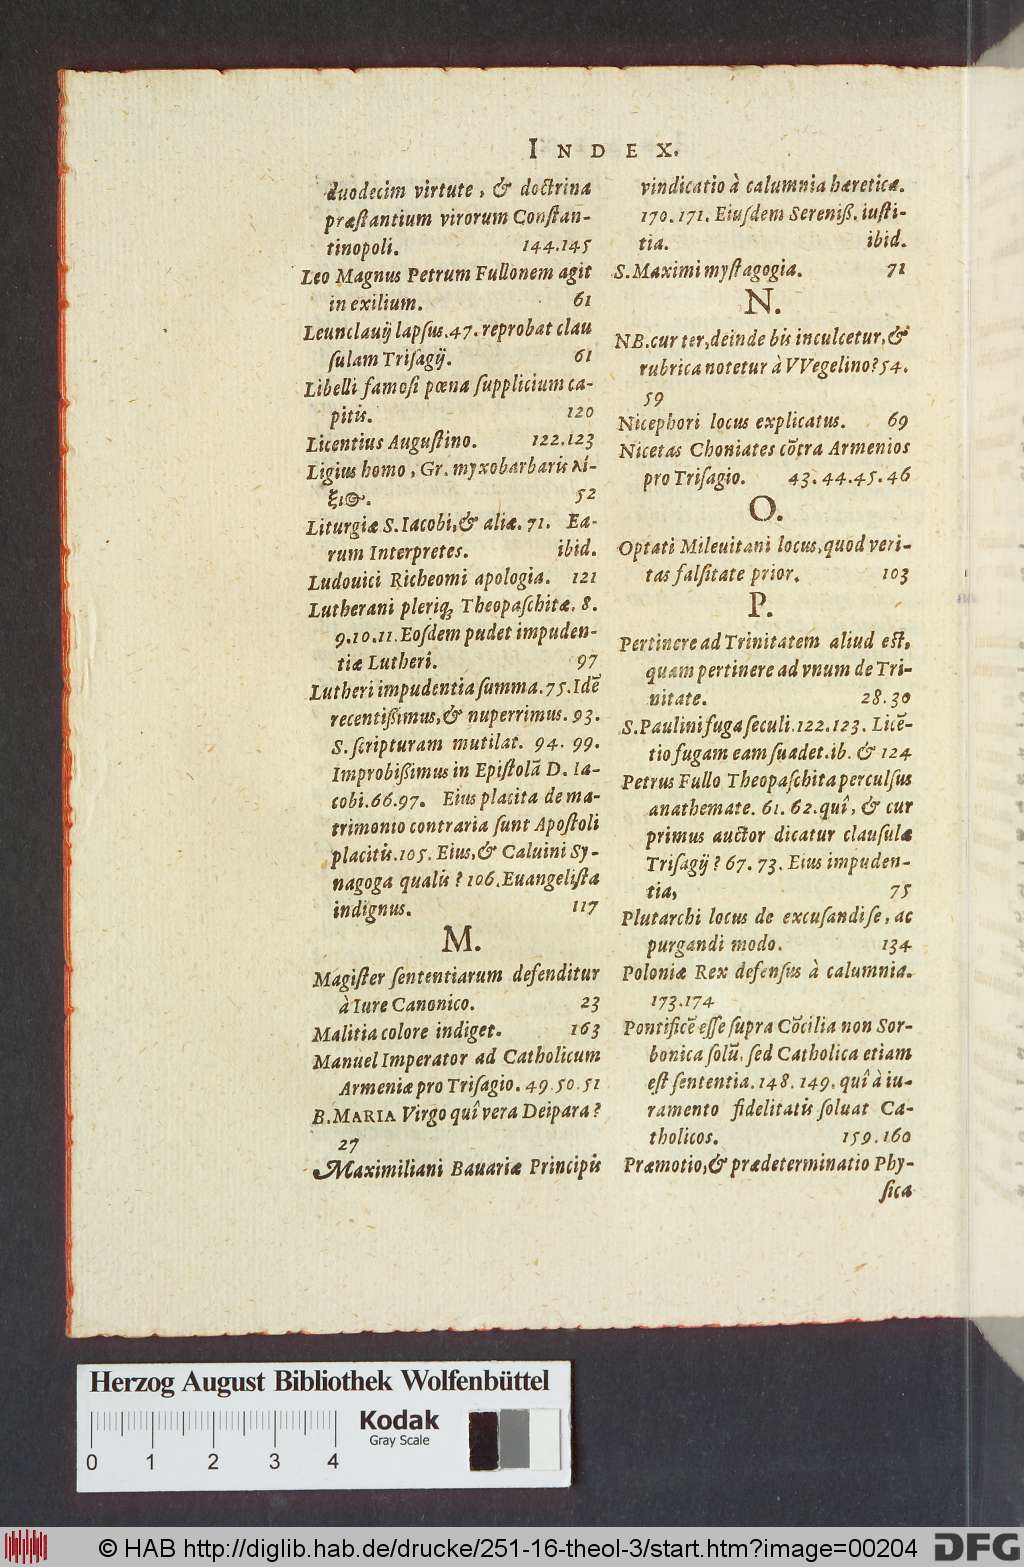 INDEX.
duodecim virtute, & doctrina
præſtantium virorum Conſtan-
tinopoli. 144.145
Leo Magnus Petrum Fullonem agit
in exilium. 61
Leunclauij lapſus.47. reprobat clau
ſulam Triſagij. 61
Libelli famoſi pœna ſupplicium ca-
pitis. 120
Licentius Auguſtino. 122.123
Ligius homo, Gr. myxobarbaris λί-
52
Liturgiæ S. Iacobi,& aliæ. 71. Ea-
rum Interpretes. ibid.
Ludouici Richeomi apologia. 121
Lutherani pleriq; Theopaſchitæ. 8.
9.10.11. Eoſdem pudet impuden-
tiæ Lutheri. 97
Lutheri impudentia ſumma.75.Idẽ
recentißimus,& nuperrimus. 93.
S. ſcripturam mutilat. 94. 99.
Improbißimus in Epiſtolã D. Ia-
cobi.66.97. Eius placita de ma-
trimonio contraria ſunt Apoſtoli
placitis.105. Eius,& Caluini Sy-
nagoga qualis? 106.Euangeliſta
indignus. 117
M.
Magiſter ſententiarum defenditur
à Iure Canonico. 23
Malitia colore indiget. 163
Manuel Imperator ad Catholicum
Armeniæ pro Triſagio. 49.50.51
B. MARIA Virgo quî vera Deipara?
27
Maximiliani Bauariæ Principis
vindicatio à calumnia hæreticæ.
170.171. Eiuſdem Sereniß. iuſti-
tia. ibid.
S. Maximi myſtagogia. 71
N.
NB.cur ter,deinde bis inculcetur,&
rubrica notetur à VVegelino? 54.
59
Nicephori locus explicatus. 69
Nicetas Choniates cõtra Armenios
pro Triſagio. 43.44.45.46
O.
Optati Mileuitani locus,quod veri-
tas falſitate prior. 103
P.
Pertinere ad Trinitatem aliud eſt,
quam pertinere ad vnum de Tri-
nitate. 28.30
S. Paulini fuga ſeculi.122.123. Licẽ-
tio fugam eam ſuadet.ib. & 124
Petrus Fullo Theopaſchita perculſus
anathemate. 61.62.quî, & cur
primus auctor dicatur clauſulæ
Triſagij? 67.73. Eius impuden-
tia, 75
Plutarchi locus de excuſandi ſe, ac
purgandi modo. 134
Poloniæ Rex defenſus à calumnia.
173.174
Pontificẽ eſſe ſupra Cõcilia non Sor-
bonica ſolũ, ſed Catholica etiam
eſt ſententia.148.149. quî à iu-
ramento fidelitatis ſoluat Ca-
tholicos. 159.160
Præmotio,& prædeterminatio Phy-
ſica
Herzog August Bibliothek Wolfenbüttel
Kodak
Gray Scale
0 1 2 3 4
© HAB http://diglib.hab.de/drucke/251-16-theol-3/start.htm?image=00204
DFG